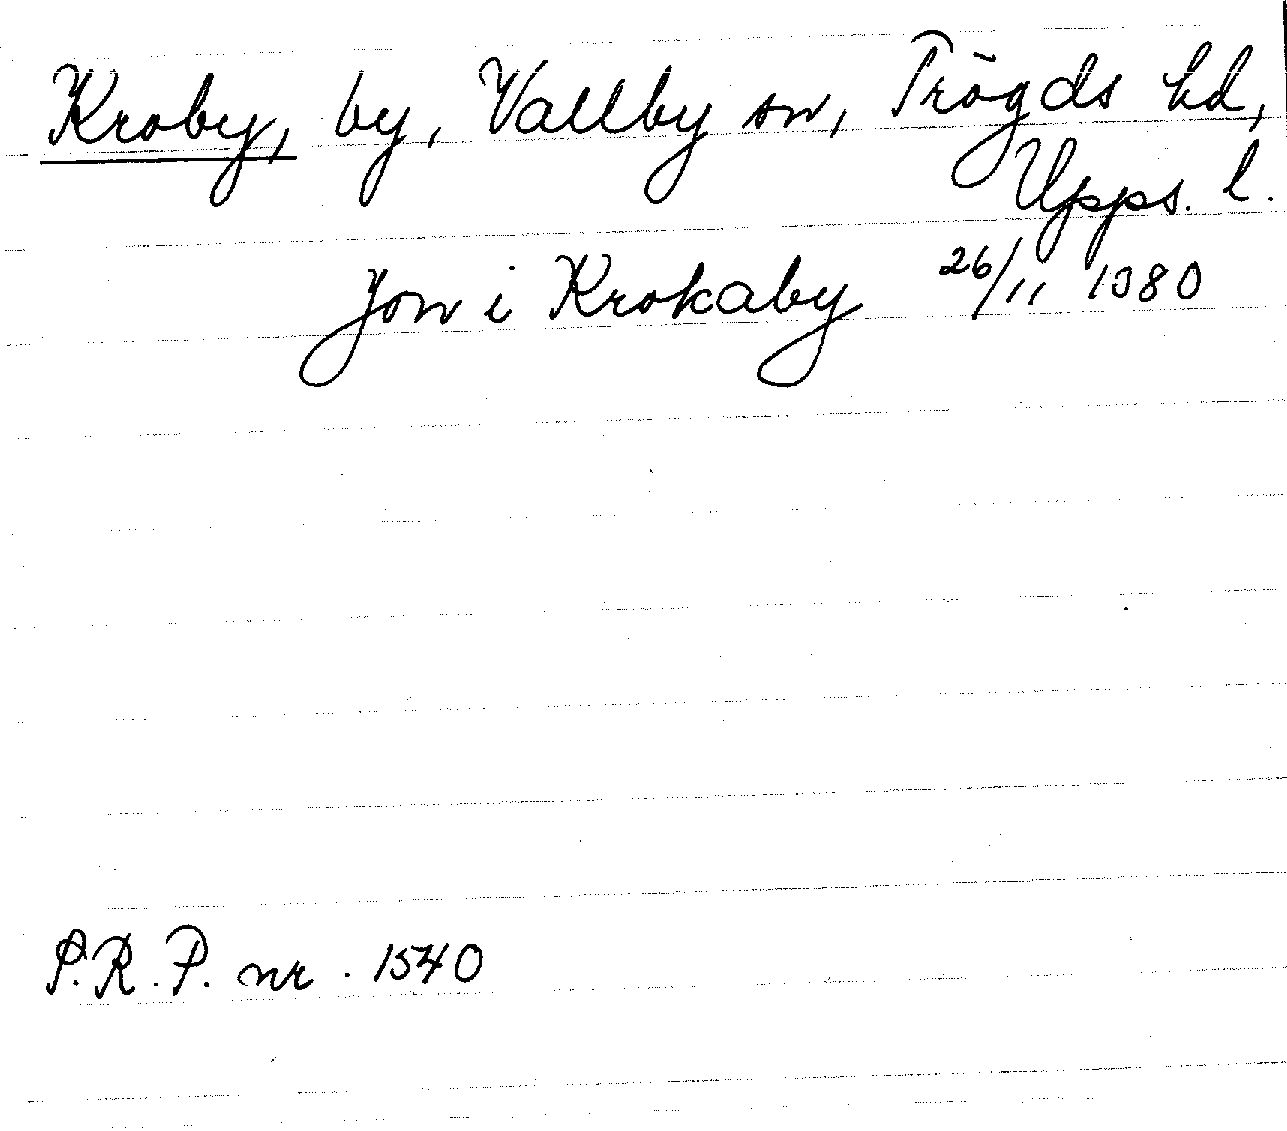 Kroby, by, Vallby sn, Trögds hd,
Upps. l.
Jon i Krokaby 26/11 1380
P.R.P. nr. 1540